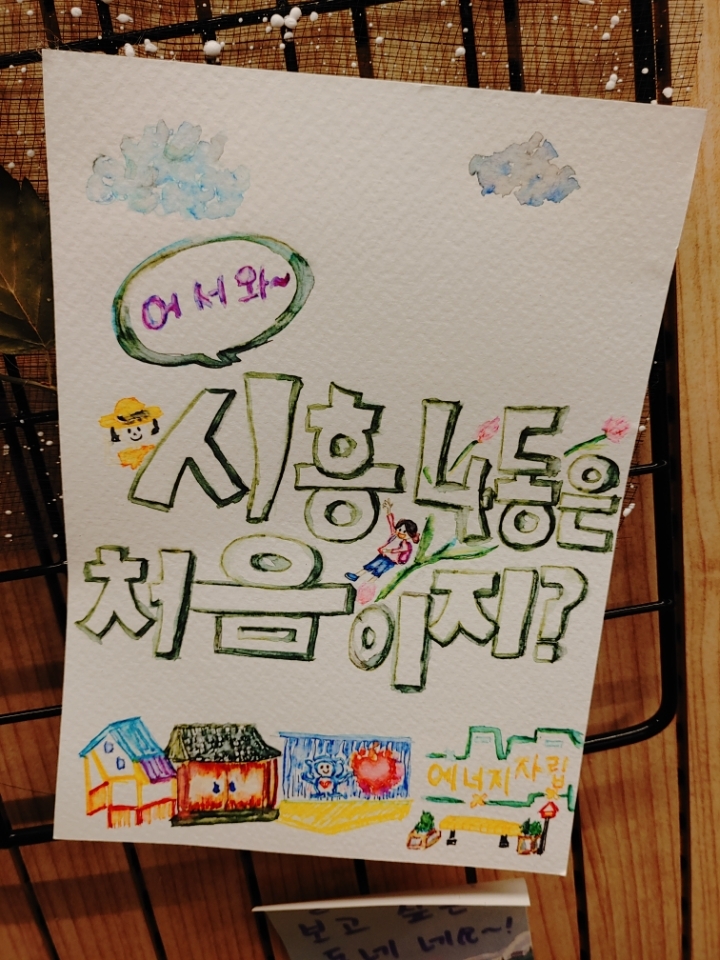 어서와~
시흥4동은
처음이지?
에너지자립
보고 싶은
동네 네요~!